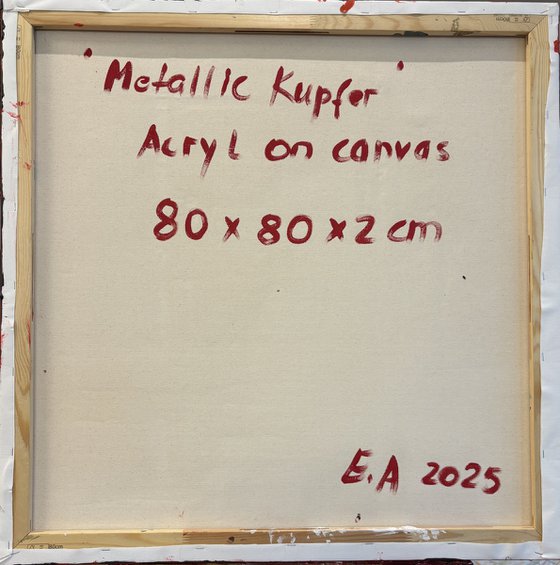 'Metallic Kupfer'
Acryl on canvas
80 x 80 x 2 cm
E.A 2025